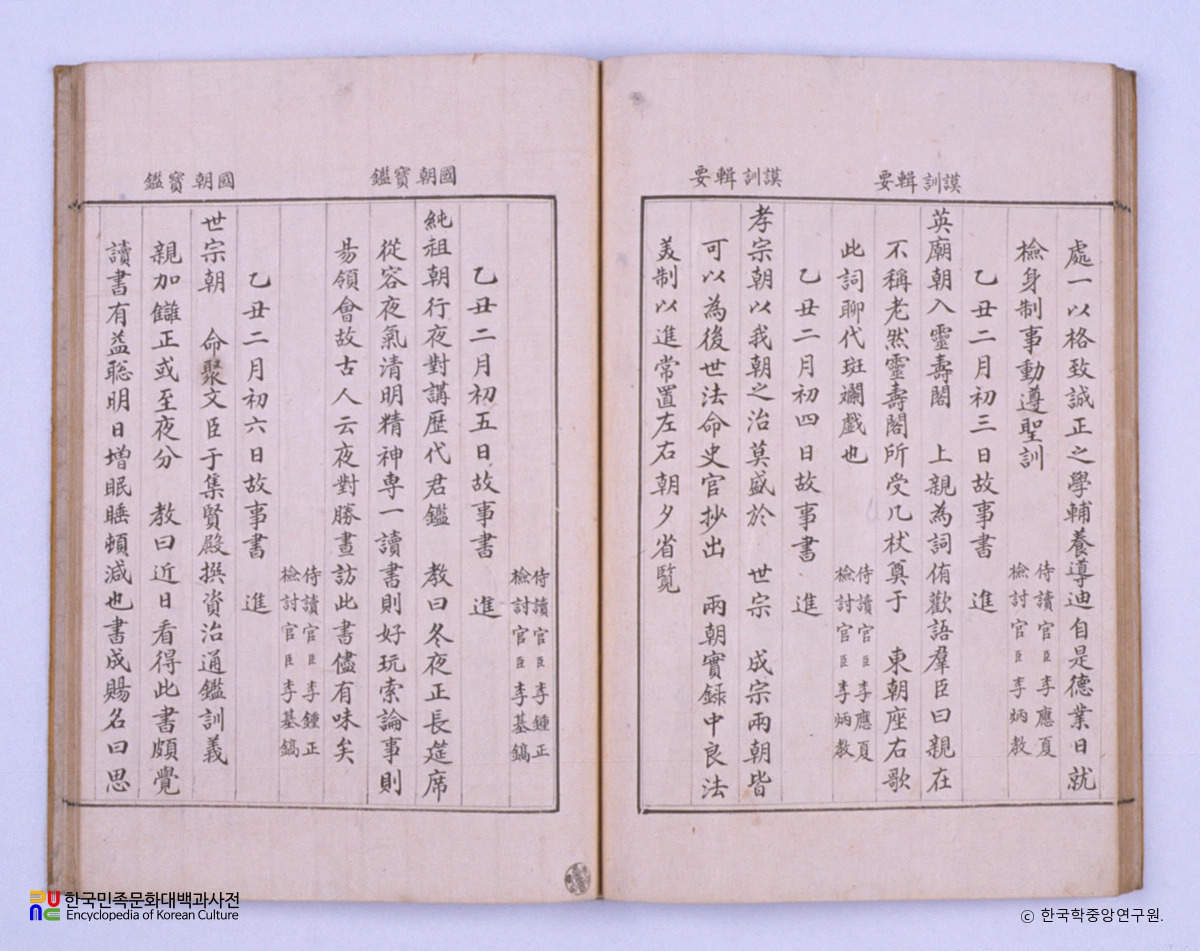 謨訓輯要
謨訓輯要
處一以格致誠正之學輔養導迪自是德業日就
檢身制事動遵聖訓
侍讀官臣李應夏
檢討官臣李炳教
乙丑二月初三日故事書 進
英廟朝入靈壽閣 上親為詞侑歡語羣臣曰親在
不稱老然靈壽閣所受几杖奠于 東朝座右歌
此詞聊代斑斕戲也
侍讀官臣李應夏
檢討官臣李炳教
乙丑二月初四日故事書 進
孝宗朝以我朝之治莫盛於 世宗 成宗兩朝皆
可以為後世法命史官抄出 兩朝實録中良法
美制以進常置左右朝夕省覽
國朝寶鑑
國朝寶鑑
侍讀官臣李鍾正
檢討官臣李基鎬
乙丑二月初五日故事書 進
純祖朝行夜對講歷代君鑑 教曰冬夜正長筵席
從容夜氣清明精神専一讀書則好玩索論事則
易領會故古人云夜對勝晝訪此書儘有味矣
侍讀官臣李鍾正
檢討官臣李基鎬
乙丑二月初六日故事書 進
世宗朝 命聚文臣于集賢殿撰資治通鑑訓義
親加讎正或至夜分 教曰近日看得此書頗覺
讀書有益聡明日增眠睡頓減也書成賜名曰思
한국민족문화대백과사전
Encyclopedia of Korean Culture
© 한국학중앙연구원.